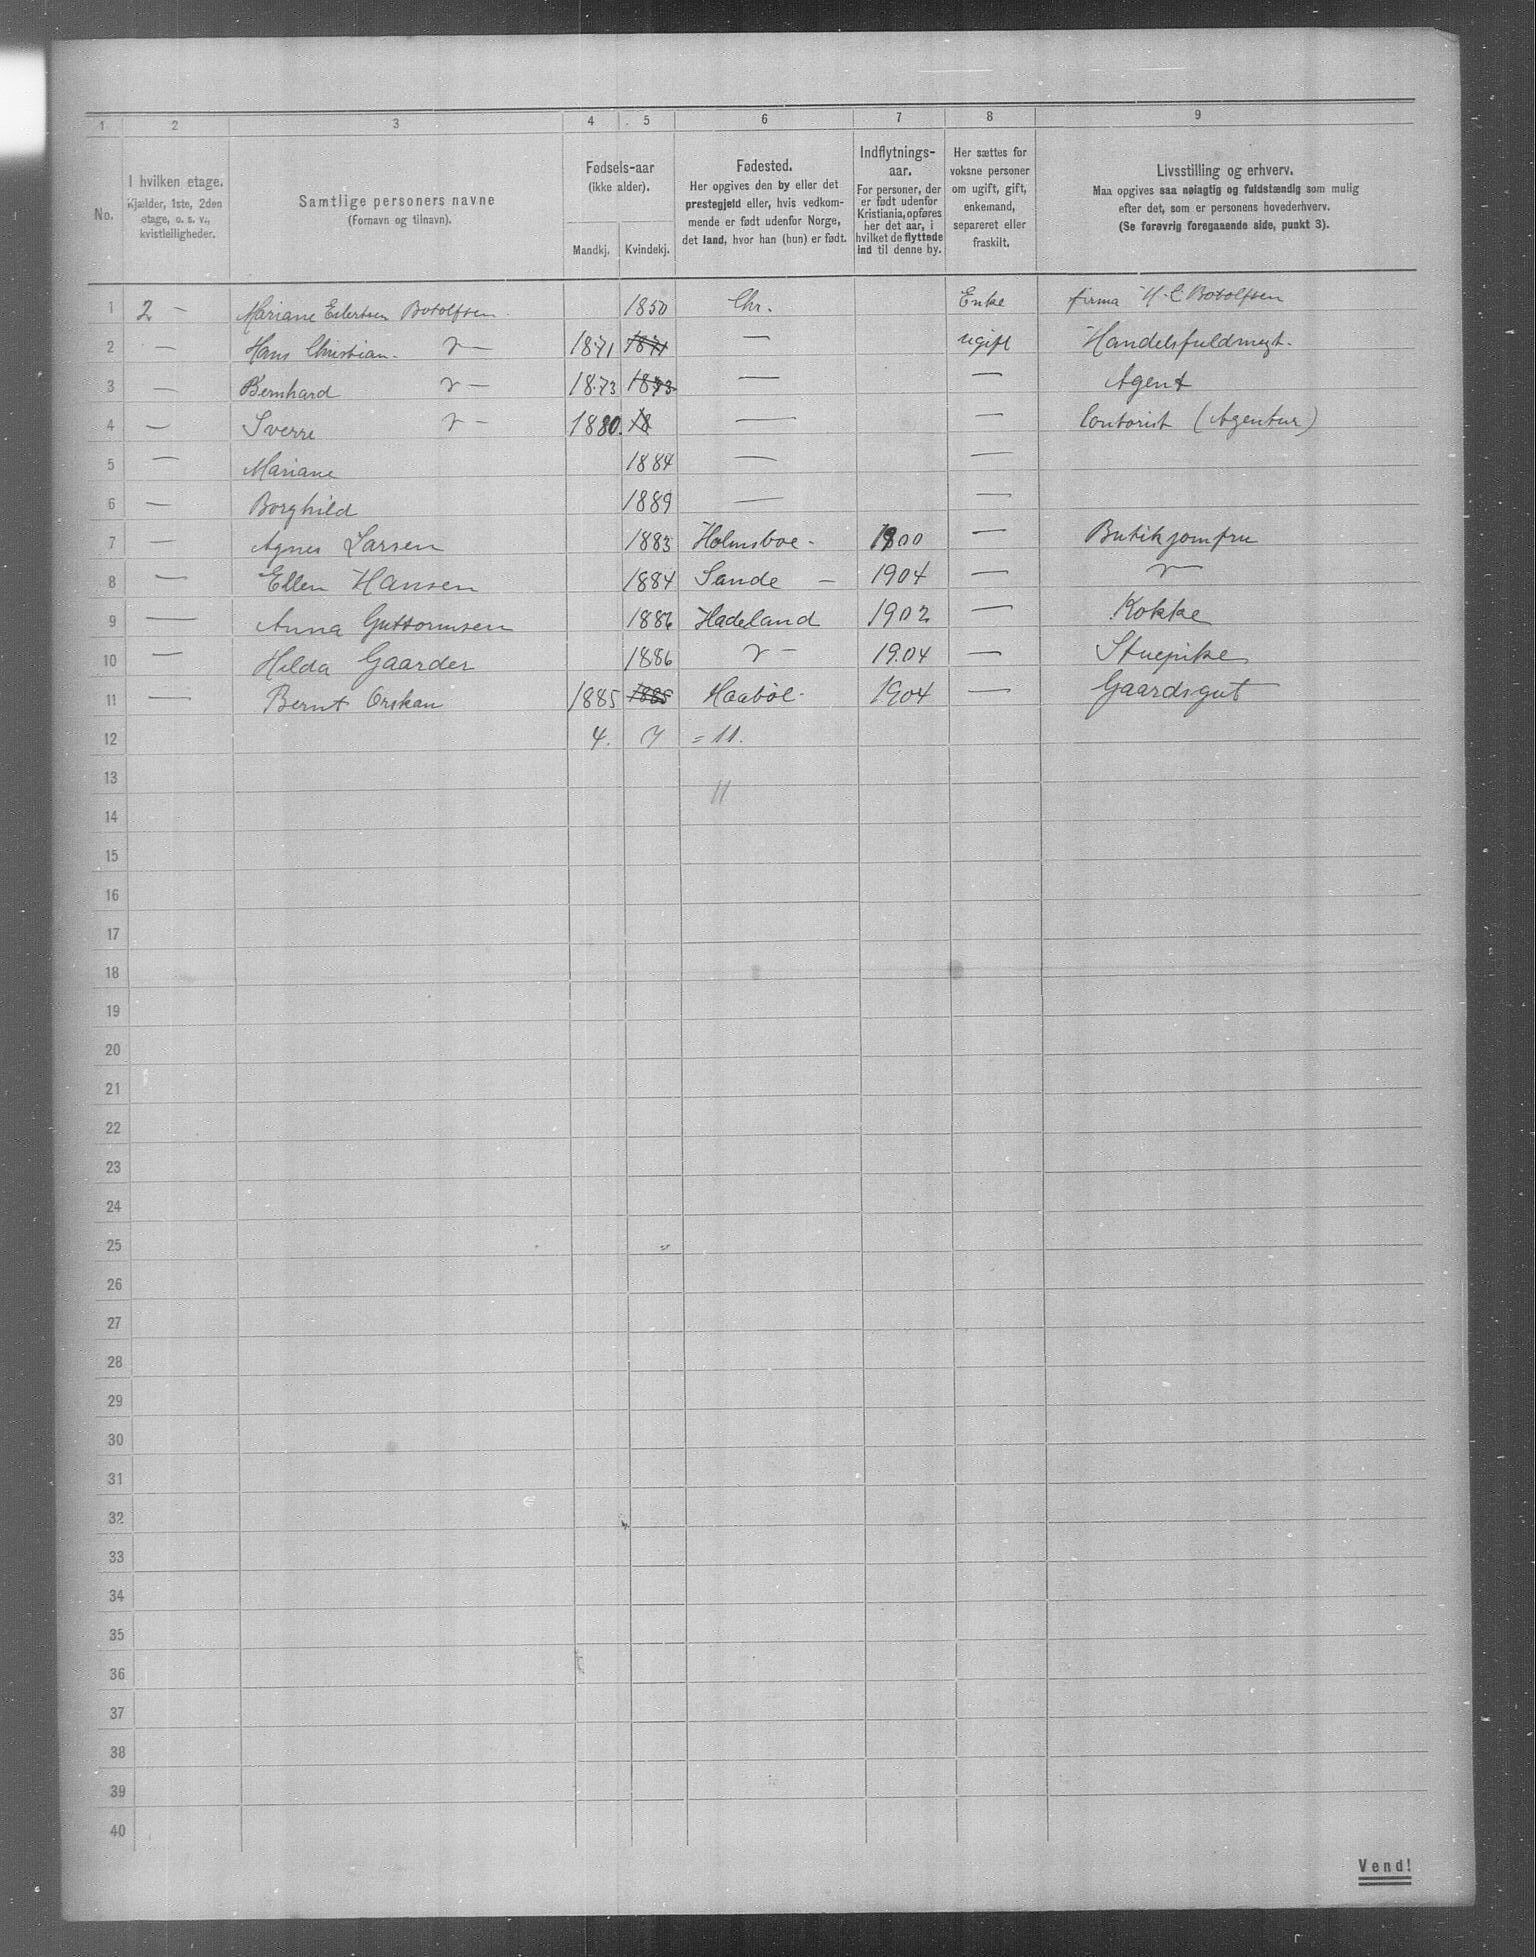 1 2 3 4 5 6 7 8 9
No. I hvilken etage. Kjælder, 1ste, 2den etage, o. s. v., kvistleiligheder. Samtlige personers navne (Fornavn og tilnavn). Fødsels-aar (ikke alder). Mandkj. Kvindekj. Fødested. Her opgives den by eller det prestegjeld eller, hvis vedkommende er født udenfor Norge, det land, hvor han (hun) er født. Indflytnings-aar. For personer, der er født udenfor Kristiania, opføres her det aar, i hvilket de flyttede ind til denne by. Her sættes for voksne personer om ugift, gift, enkemand, separeret eller fraskilt. Livsstilling og erhverv. Maa opgives saa nøiagtig og fuldstændig som mulig efter det, som er personens hovederhverv. (Se forøvrig foregaaende side, punkt 3).
1 2 — Mariane Eilertsen Botolfsen 1850 Chr. Enke firma H. C Botolfsen
2 — Hans Christian — 1871 1871 — ugift Handelsfuldmegt.
3 — Bernhard — 1873 1873 — — Agent
4 — Sverre — 1880. 18 — — Contorist (Agentur)
5 — Mariane 1884 — —
6 — Borghild 1889 — —
7 — Agnes Larsen 1883 Holmsboe - 1900 — Butikjomfru
8 — Ellen Hansen 1884 Sande — 1904 —
9 — Anna Guttormsen 1886 Hadeland 1902 — Kokke
10 — Hilda Gaarder 1886 — 1904 — Stuepike
11 — Bernt 1885 1885 1904 — Gaardsgut
12 4. 7 = 11.
13 11
14
15
16
17
18
19
20
21
22
23
24
25
26
27
28
29
30
31
32
33
34
35
36
37
38
39
40
Vend!